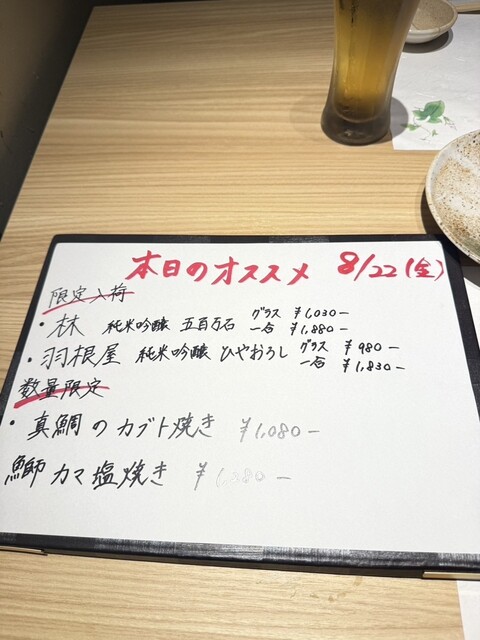 本日のオススメ 8/22(金)
限定入荷
・林 純米吟醸 五百万石 グラス ¥1,030-
一合 ¥1,880-
・羽根屋 純米吟醸 ひやおろし グラス ¥980-
一合 ¥1,830-
数量限定
・真鯛のカブト焼き ¥1,080-
鰤カマ塩焼き